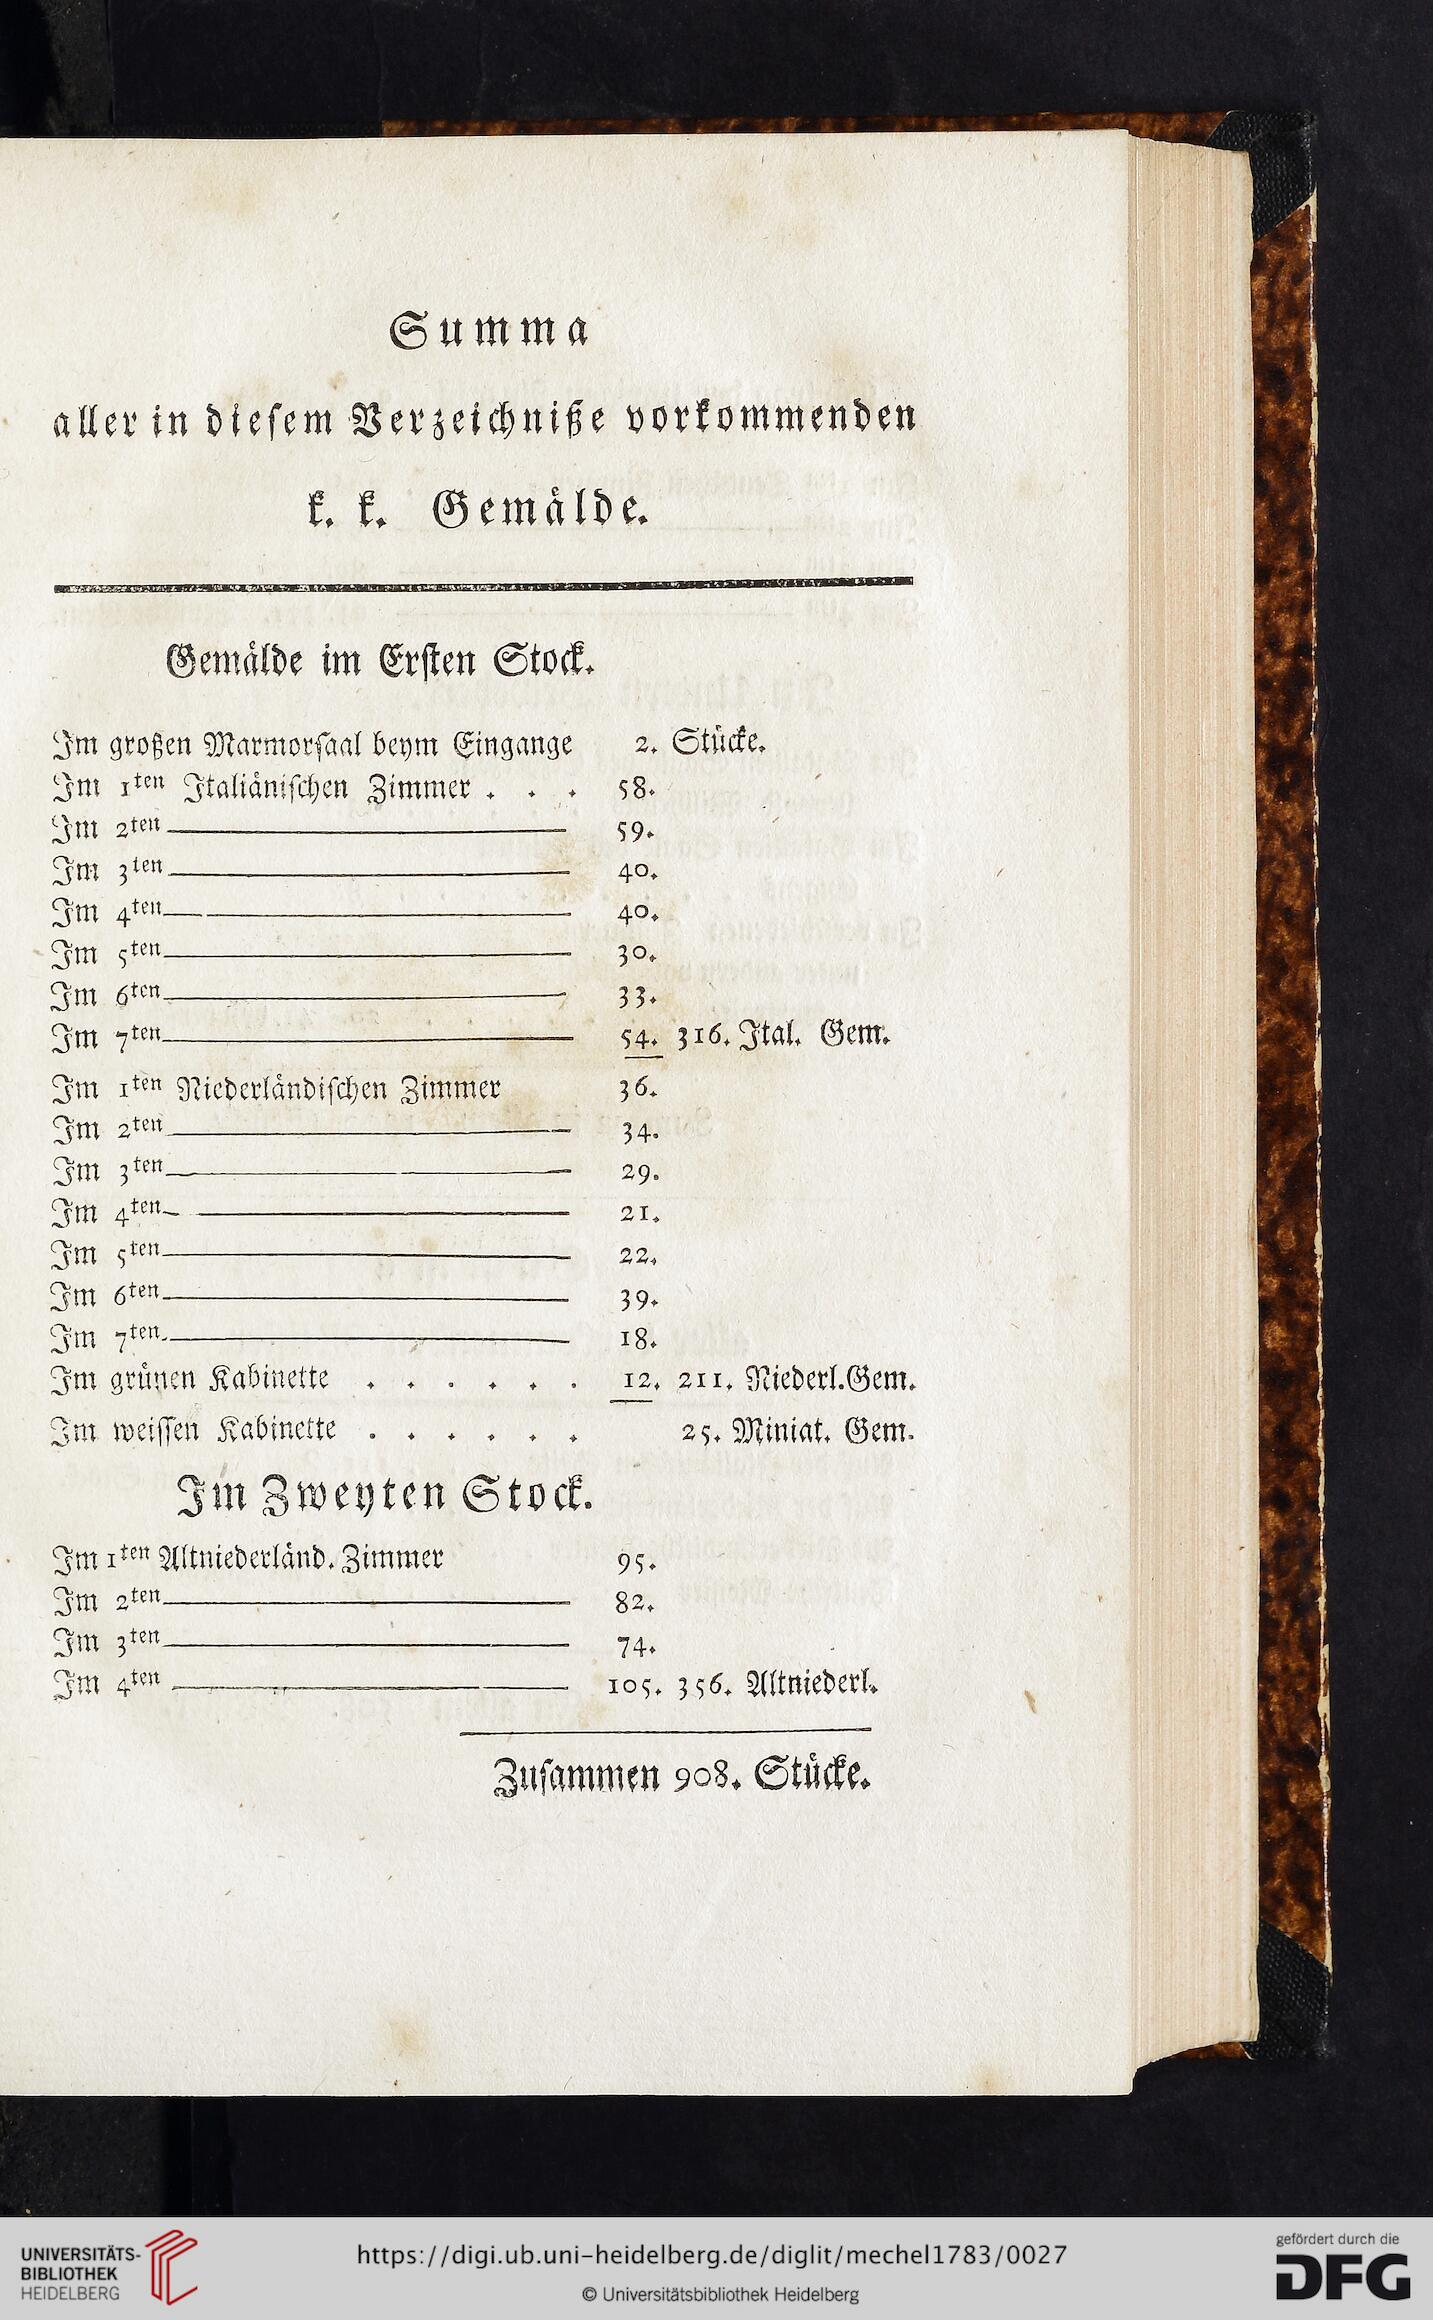 Summa
aller in dieſem Verzeichniße vorkommenden
k. k. Gemälde.
Gemälde im Erſten Stock.
Im großen Marmorſaal beym Eingange 2. Stücke.
Im 1ten Italiäniſchen Zimmer . . . 58.
Im 2ten ——— 59.
Im 3ten ——— 40.
Im 4ten ——— 40.
Im 5ten ——— 30.
Im 6ten ——— 33.
Im 7ten ——— 54. 316. Ital. Gem.
Im 1ten Niederländiſchen Zimmer 36.
Im 2ten ——— 34.
Im 3ten ——— 29.
Im 4ten ——— 21.
Im 5ten ——— 22.
Im 6ten ——— 39.
Im 7ten ——— 18.
Im grünen Kabinette . . . . . . 12. 211. Niederl. Gem.
Im weiſſen Kabinette . . . . . . 25. Miniat. Gem.
Im Zweyten Stock.
Im 1ten Altniederländ. Zimmer 95.
Im 2ten ——— 82.
Im 3ten ——— 74.
Im 4ten ——— 105. 356. Altniederl.
Zuſammen 908. Stücke.
UNIVERSITÄTS-
BIBLIOTHEK
HEIDELBERG
https://digi.ub.uni-heidelberg.de/diglit/mechel1783/0027
© Universitätsbibliothek Heidelberg
gefördert durch die
DFG